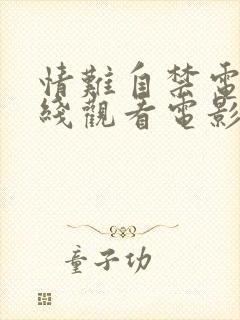 情難自禁電
綫觀看電影
童子功